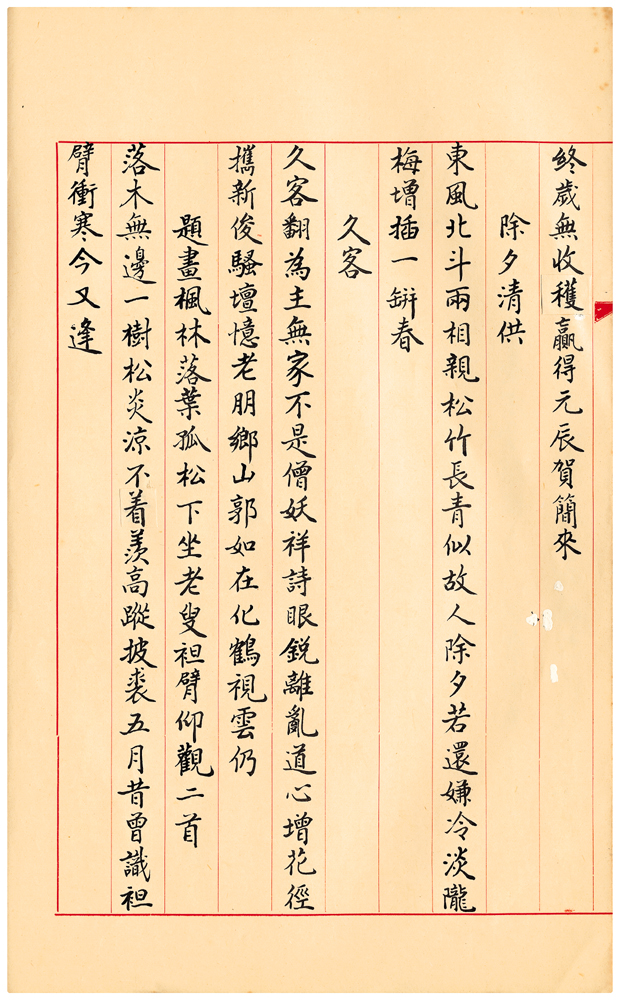 終歲無收穫贏得元辰賀簡來
除夕清供
東風北斗兩相親松竹長青似故人除夕若還嫌冷淡隴
梅增插一缾春
久客
久客翻為主無家不是僧妖祥詩眼銳離亂道心增花徑
攜新俊騷壇憶老朋鄉山郭如在化鶴視雲仍
題畫楓林落葉孤松下坐老叟袒臂仰觀二首
落木無邊一樹松炎涼不着羨高蹤披裘五月昔曾識袒
臂衝寒今又逢